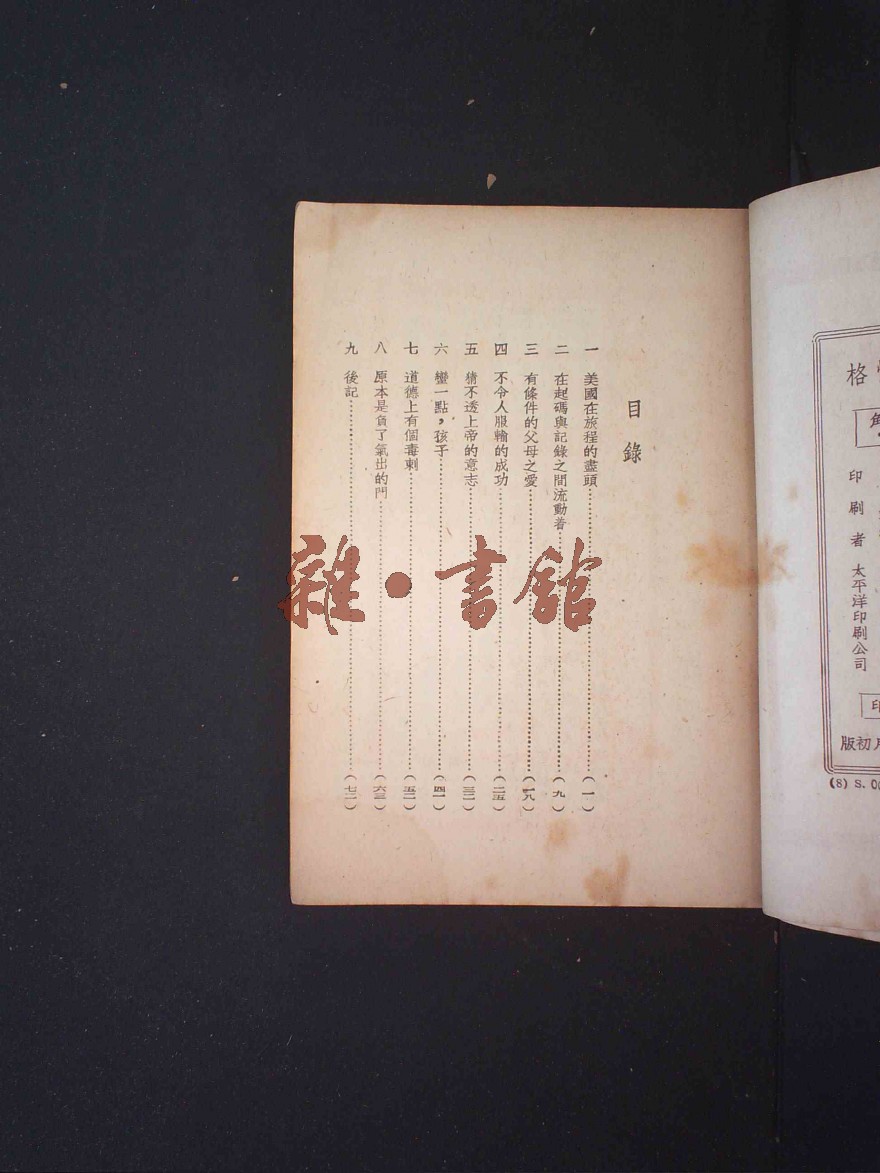 格
印刷者 太平洋印刷公司
印
月初版
(8) S. 0
目錄
一 美國在旅程的盡頭……(一)
二 在起碼與記錄之間流動着……(九)
三 有條件的父母之愛……(一八)
四 不令人服輸的成功……(二五)
五 猜不透上帝的意志……(三二)
六 蠻一點,孩子……(四一)
七 道德上有個毒刺……(五二)
八 原本是負了氣出的門……(六三)
九 後記……(七二)
雜·書館